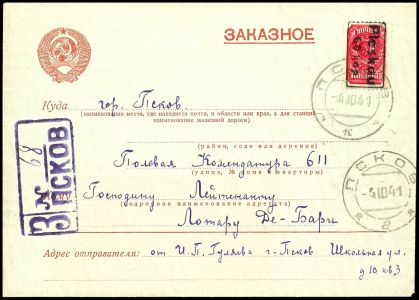 ЗАКАЗНОЕ
Куда гор. Псков.
(наименование места, где находится почта, и области или края, а для станции
наименование железной дороги)
(район, село или деревня)
Полевая Комендатура 611
(улица, № дома и квартиры)
Кому Господину Лейтенанту
(подробное наименование адресата)
Лотару Де-Бари
Адрес отправителя: от И.П. Гуляева г-Псков Школьная ул.
д 10 кв 3
З № 68
ПСКОВ
ПСКОВ
-4.10.41
ПСКОВ
-4.10.41